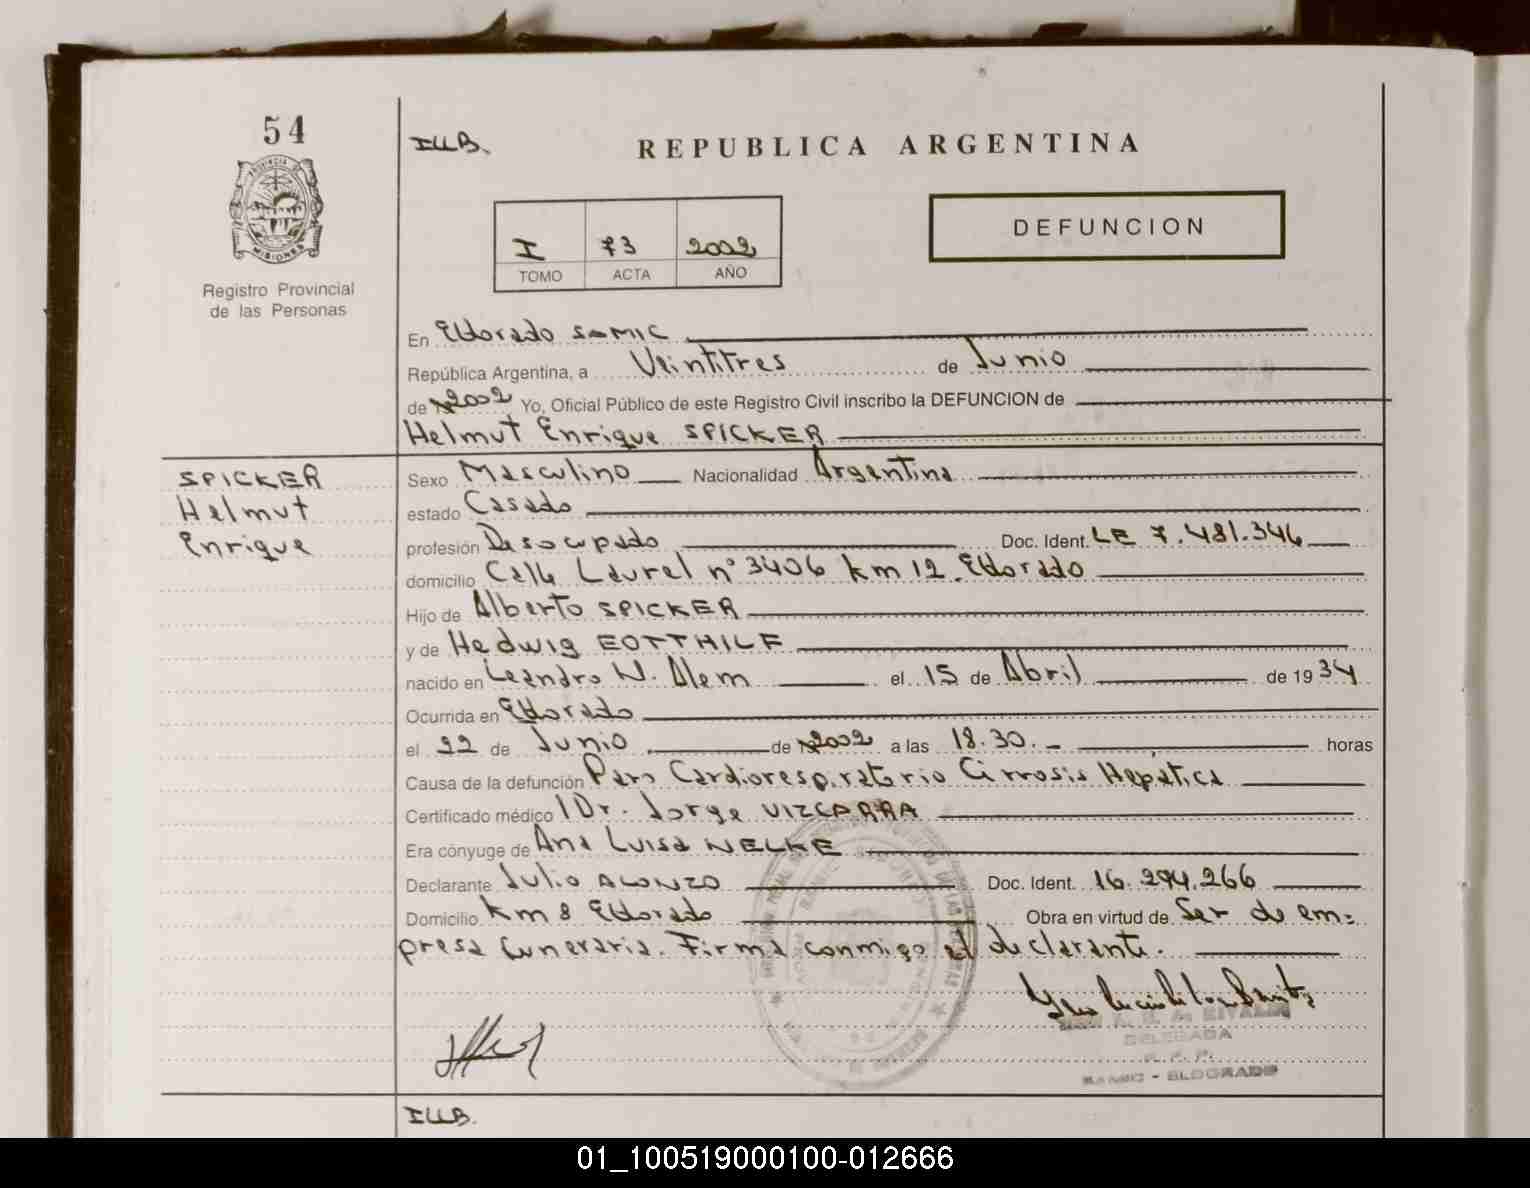 54
ILLB.
REPUBLICA ARGENTINA
PROVINCIA DE
MISIONES
Registro Provincial
de las Personas
I 73 2002
TOMO ACTA AÑO
DEFUNCION
En Eldorado SAMIC
República Argentina, a Veintitres de Junio
de 2002 Yo, Oficial Público de este Registro Civil inscribo la DEFUNCION de
Helmut Enrique SPICKER
SPICKER
Helmut
Enrique
Sexo Masculino Nacionalidad Argentina
estado Casado
profesión Desocupado Doc. Ident. LE 7.481.346
domicilio Calle Laurel n° 3406 km 12. Eldorado
Hijo de Alberto SPICKER
y de Hedwig EOTTHILF
nacido en Leandro N. Alem el 15 de Abril de 1934
Ocurrida en Eldorado
el 22 de Junio de 2002 a las 18.30.- horas
Causa de la defunción Paro Cardiorespiratorio Cirrosis Hepática
Certificado médico Dr. Jorge VIZCARRA
Era cónyuge de Ana Luisa NELKE
Declarante Julio ALONZO Doc. Ident. 16.294.266
Domicilio Km 8 Eldorado Obra en virtud de Ser de em=
presa funeraria. Firma conmigo el declarante.
DELEGADA
SAMIC - ELDORADO
ILLB.
01_100519000100-012666